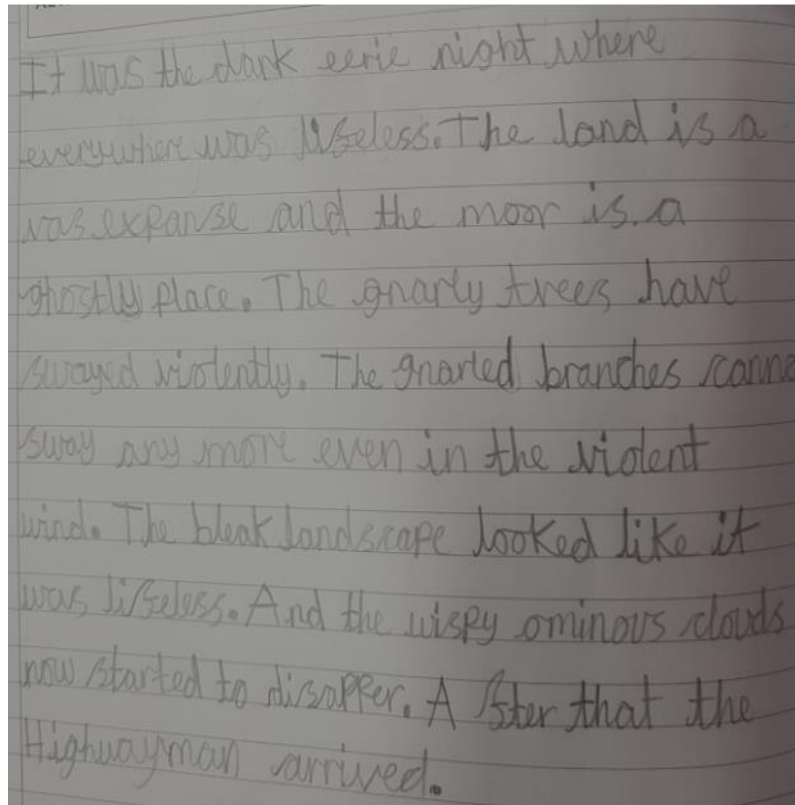 It was the dark eerie night where
everywhere was lifeless. The land is a
vas expanse and the moor is a
ghostly place. The gnarly trees have
swayed violently. The gnarled branches canno
sway any more even in the violent
wind. The bleak landscape looked like it
was lifeless. And the wispy ominous clouds
now started to disapper. After that the
Highwayman arrived.